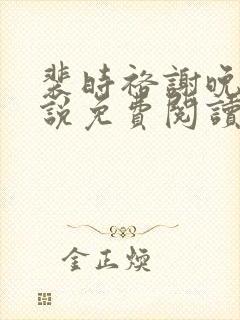 裴時裕謝晚
說免費閱讀
金正煥